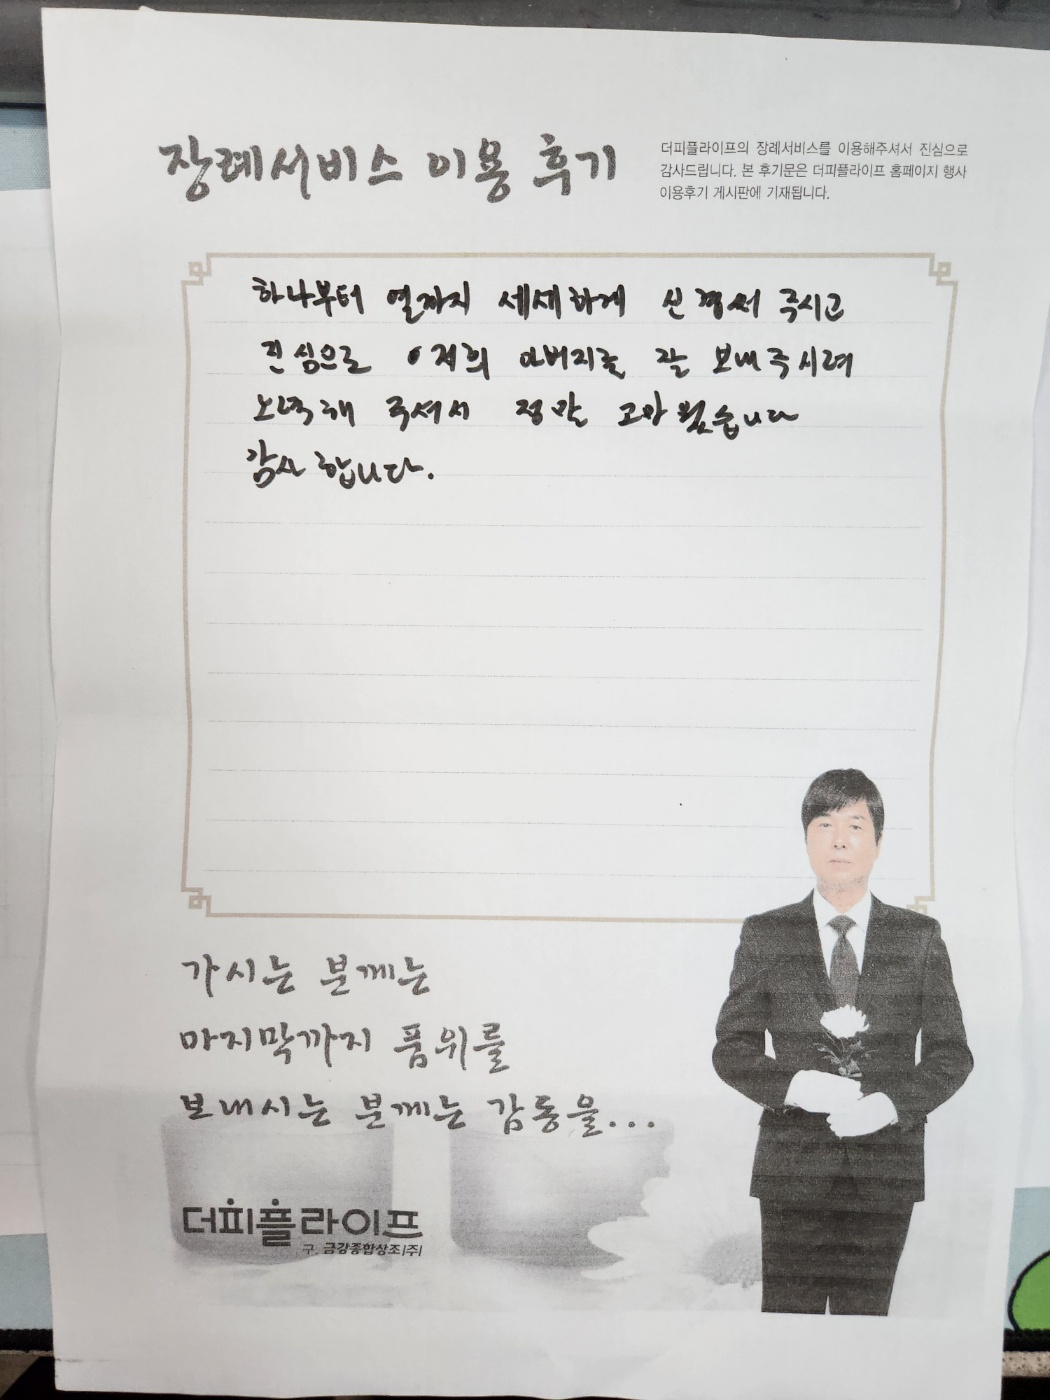 장례서비스 이용 후기
더피플라이프의 장례서비스를 이용해주셔서 진심으로
감사드립니다. 본 후기문은 더피플라이프 홈페이지 행사
이용후기 게시판에 기재됩니다.
하나부터 열까지 세세하게 신경써 주시고
진심으로 저희 아버지를 잘 보내주시려
노력해 주셔서 정말 고마웠습니다
감사합니다.
가시는 분께는
마지막까지 품위를
보내시는 분께는 감동을...
더피플라이프
구. 금강종합상조(주)